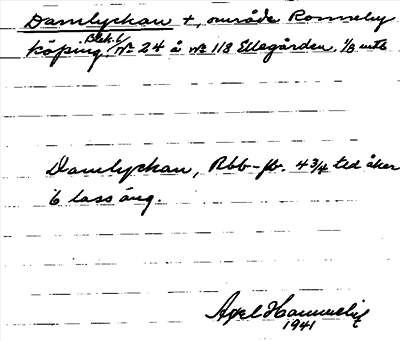 Damlyckan +, område Ronneby
Blek. l.
köping, No 24 å No 118 Ellegården, 1/8 mtl
Damlyckan, Rbb-jb. 4 3/4 tld åker
6 lass äng.
Axel
1941